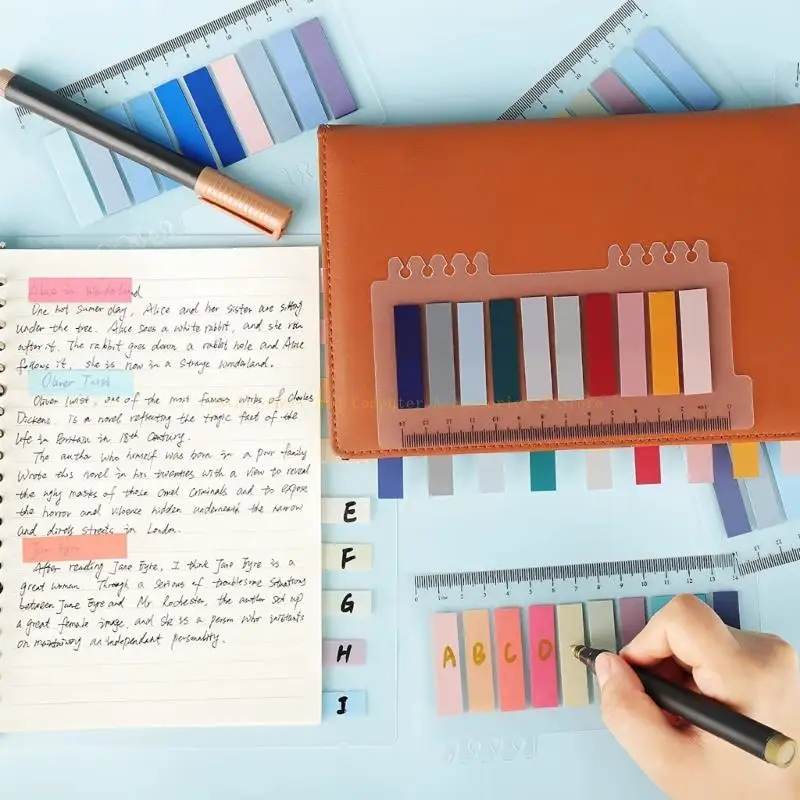 Alice in Wonderland
One hot sumer day, Alice and her sister are sitting
under the tree. Alice sees a white rabbit, and she run
after it. The rabbit goes down a rabbit hole and Alice
follows it, she is now in a strage wonderland.
Oliver Twist
Oliver Twist, one of the most famous works of Charles
Dickens. Is a novel reflecting the tragic fact of the
life in Britain in 18th Century.
The author who himself was born in a poor family
wrote this novel in his twenties with a view to reveal
the ugly masks of these cruel criminals and to expose
the horror and violence hidden underneath the narrow
and dirty streets in London.
Jane Eyre
After reading Jane Eyre, I think Jane Eyre is a
great woman. Through a serious of troublesome situations
between Jane Eyre and Mr Rochester, the author set up
a great female image, and she is a person who insistants
on maintaining an independant personality.
E
F
G
H
I
A B C D